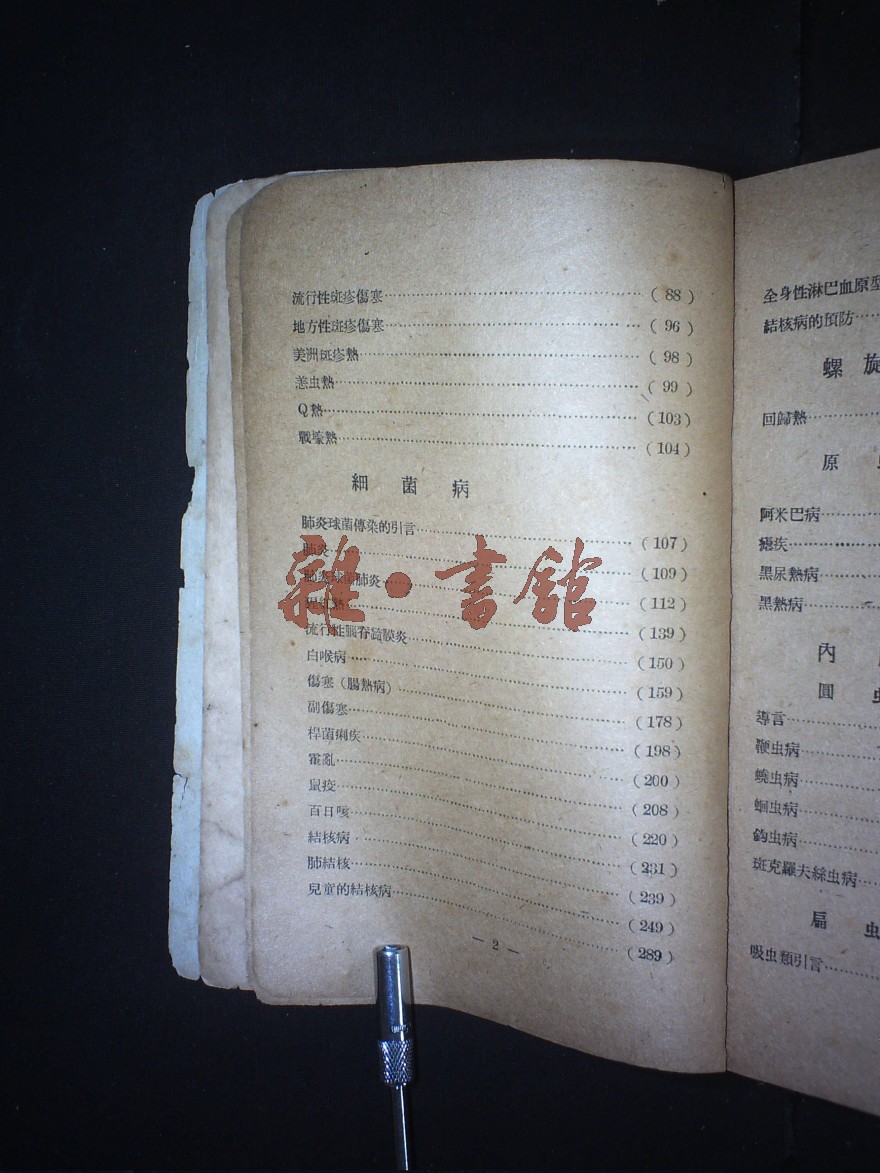 流行性斑疹傷寒……(88)
地方性斑疹傷寒……(96)
美洲斑疹熱……(98)
恙虫熱……(99)
Q熱……(103)
戰壕熱……(104)
細菌病
肺炎球菌傳染的引言……(107)
肺炎……(109)
肺炎球菌肺炎……(112)
猩紅熱……(139)
流行性腦脊髓膜炎……(150)
白喉病……(159)
傷寒(腸熱病)……(178)
副傷寒……(198)
桿菌痢疾……(200)
霍亂……(208)
鼠疫……(220)
百日咳……(231)
結核病……(239)
肺結核……(249)
兒童的結核病……(289)
— 2 —
雜·書館
全身性淋巴血原型
結核病的預防……
螺旋
回歸熱……
原
阿米巴病……
瘧疾……
黑尿熱病……
黑熱病……
內
圓
導言……
鞭虫病……
蟯虫病……
蛔虫病……
鈎虫病……
斑克羅夫絲虫病……
扁虫
吸虫類引言……